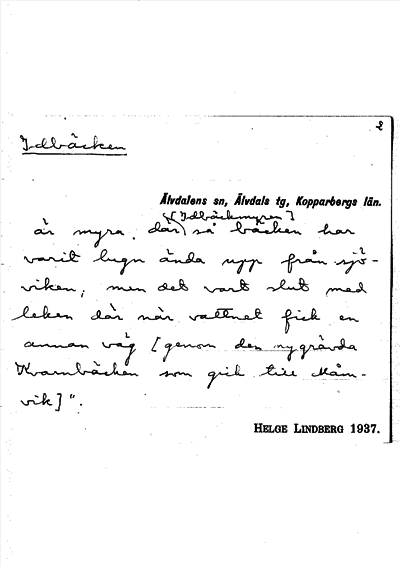 2
Idbäcken
Älvdalens sn, Älvdals tg, Kopparbergs län.
[Idbäckmyren]
är myra, där, så bäcken har
varit lugn ända upp från sjö-
viken; men det vart slut med
leken där när vattnet fick en
annan väg [genom den nygrävda
Kvarnbäcken som gick till Mån-
vik]".
HELGE LINDBERG 1937.